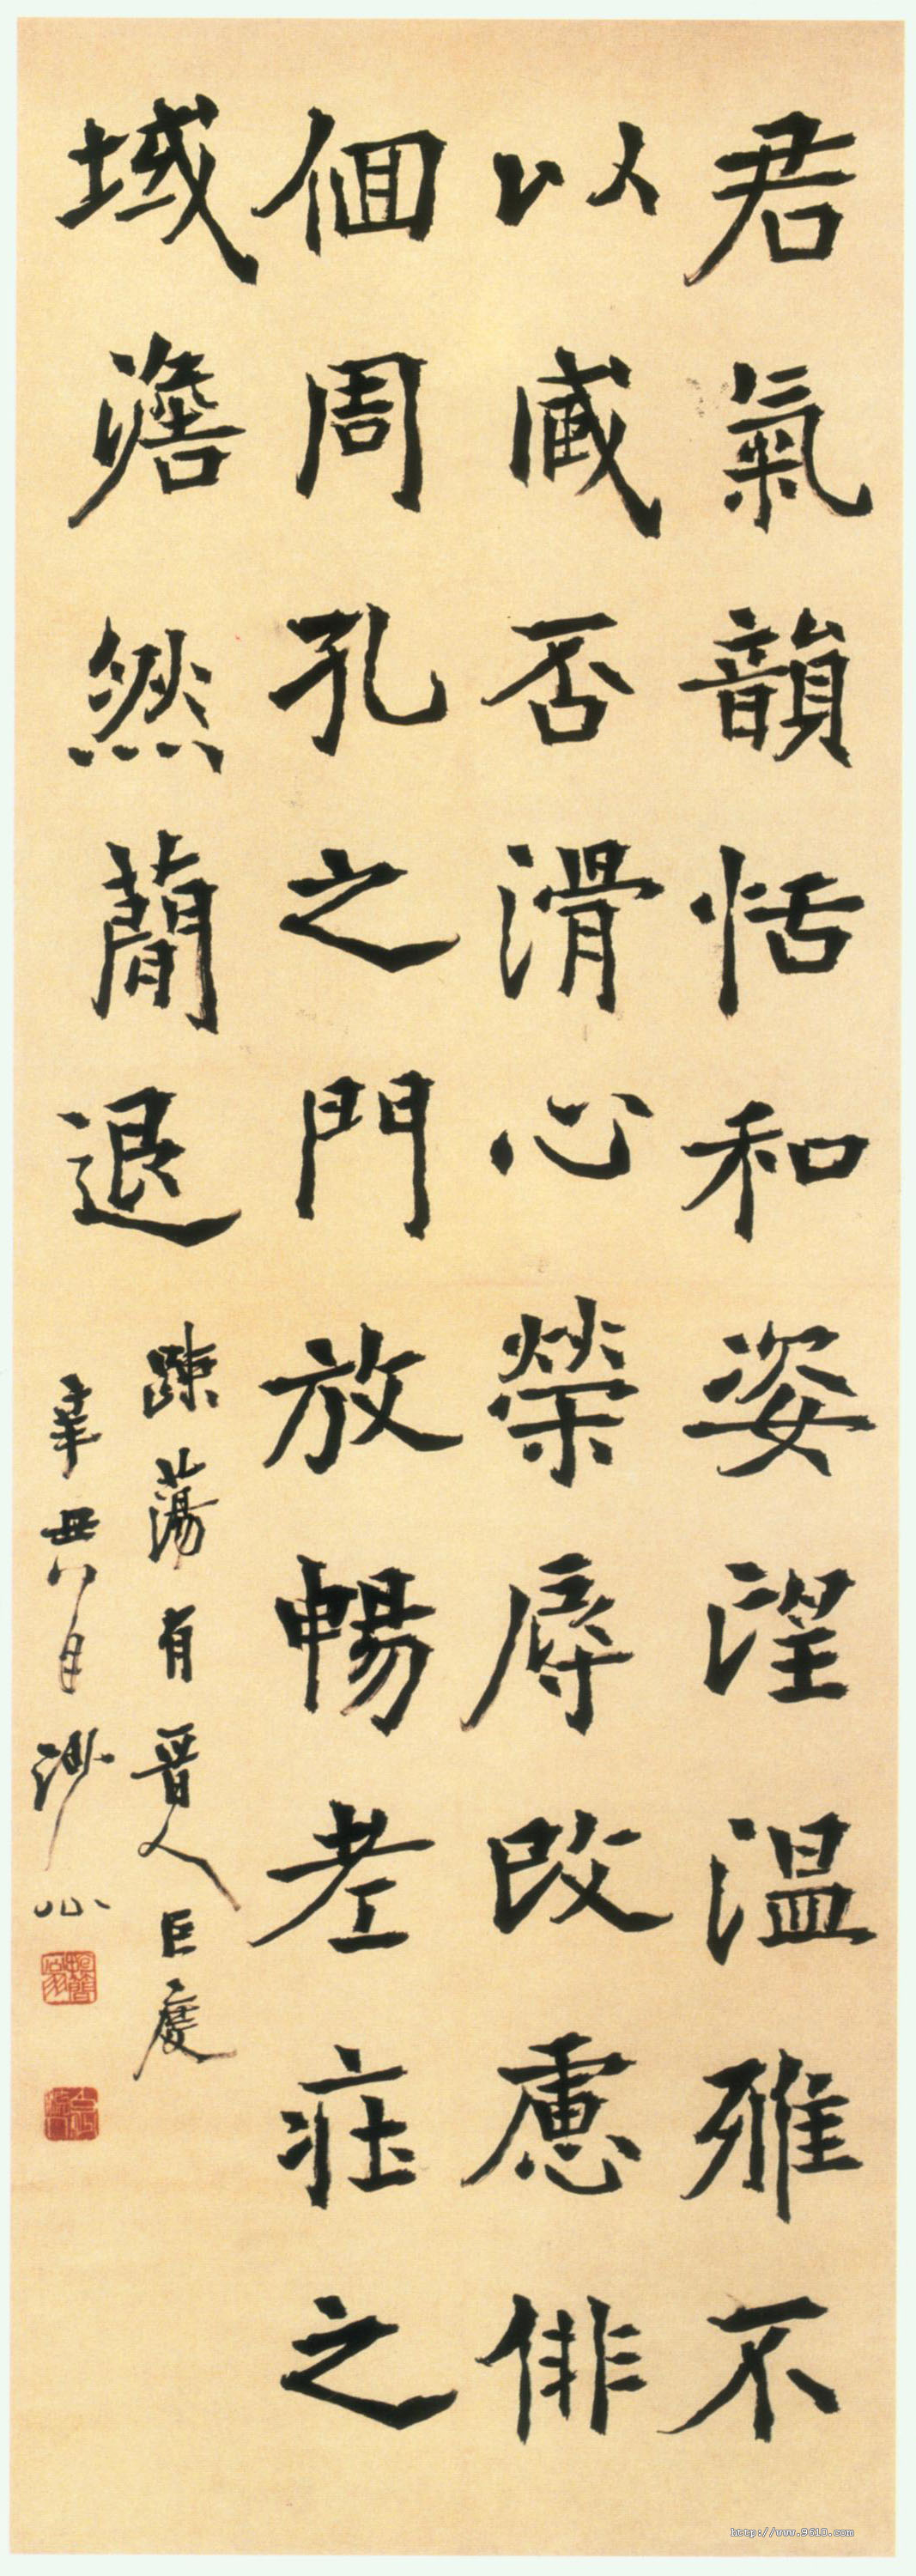 君氣韻恬和姿望温雅不
以臧否滑心榮辱改慮俳
佪周孔之門放暢老莊之
域澹然蕳退
踈蕩有晉人巨度
辛丑八月
http://www.9610.com